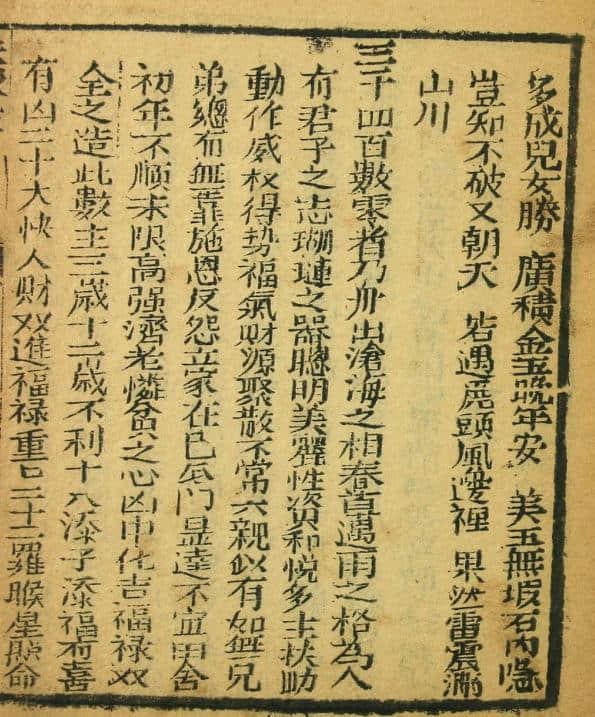 多成兒女勝 廣積金玉晚年安 美玉無瑕石內隱
豈知不破又朝天 若遇虎頭風邊裡 果然雷震滿
山川
三千四百數零者乃舟出滄海之相春苗遇雨之格為人
有君子之志瑚璉之器聰明美麗性資和悅多主扶助
動作威权得勢福氣財源聚散不常六親似有如無兄
弟總有無靠施恩反怨立家在巳瓜門显達不宜田舍
初年不順末限高强濟老憐貧之心凶中化吉福禄双
全之造此數主三歲十二歲不利十八添子添福有喜
有凶二十大快人財双進福禄重口二十二羅睺星照命